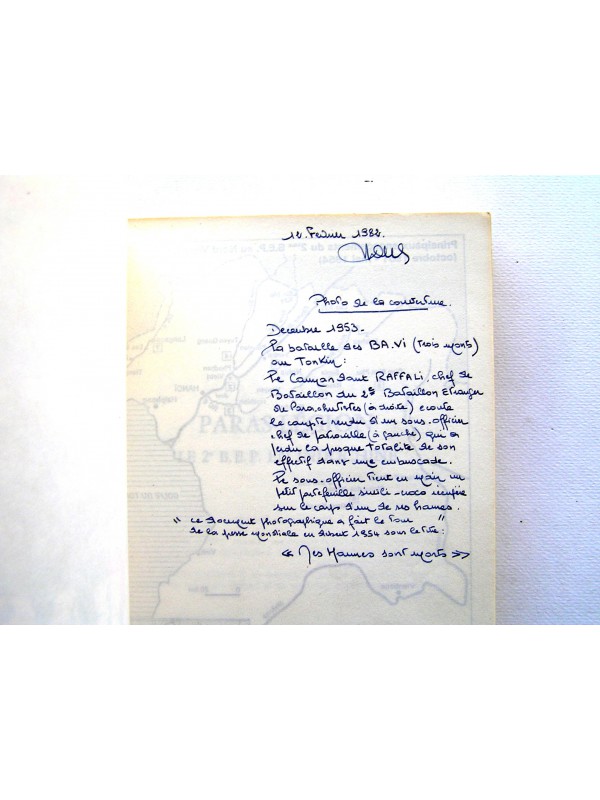 12. Février 1982.
Photo de la couverture.
Décembre 1953.
La bataille des BA.Vi (trois monts)
au Tonkin:
Le Commandant RAFFALi, chef de
Bataillon du 2e Bataillon Etranger
de Parachutistes (à droite) ecoute
le compte rendu d'un sous.officier
chef de patrouille (à gauche) qui a
perdu la presque totalité de son
effectif dans une embuscade.
Le sous.officier tient en main un
petit portefeuille simili-croco récupéré
sur le corps d'un de ses hommes.
" ce document photographique a fait le tour "
de la presse mondiale en debut 1954 sous le titre:
« Mes Hommes sont morts »